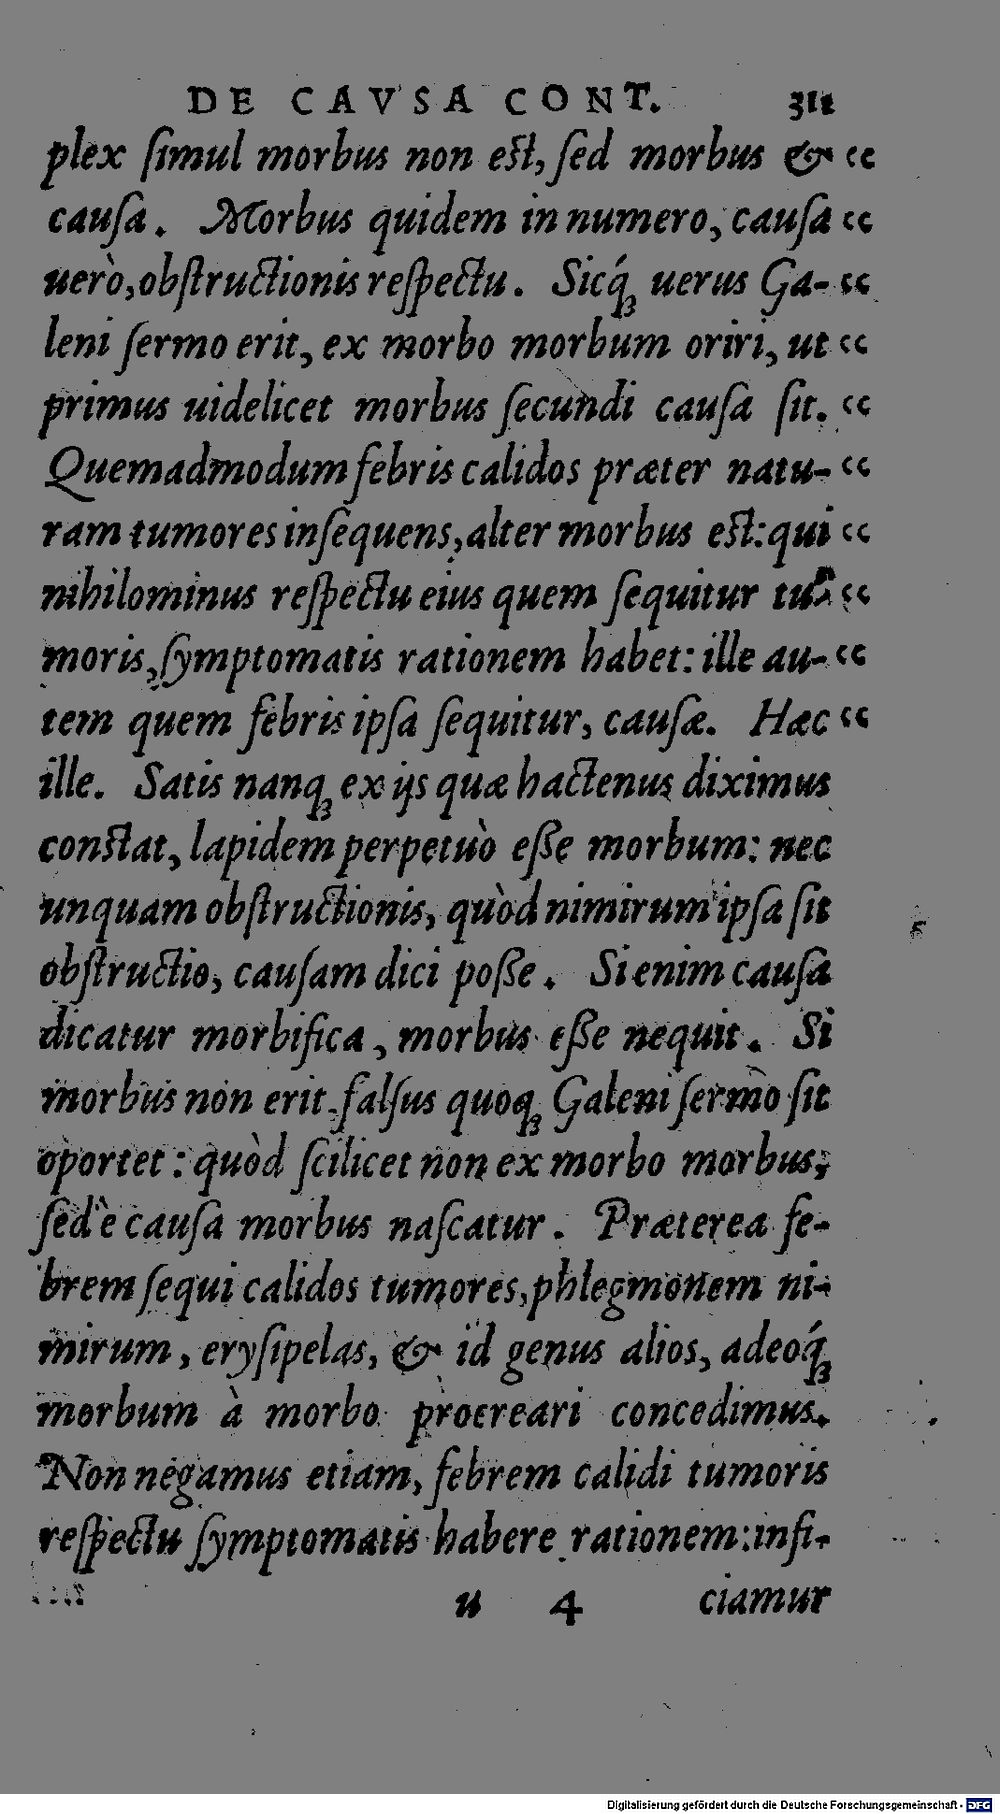 DE CAVSA CONT. 311
plex ſimul morbus non eſt, ſed morbus & “
cauſa. Morbus quidem in numero, cauſa “
uerò, obſtructionis reſpectu. Sicq́; uerus Ga- “
leni ſermo erit, ex morbo morbum oriri, ut “
primus uidelicet morbus ſecundi cauſa ſit. “
Quemadmodum febris calidos præter natu- “
ram tumores inſequens, alter morbus eſt: qui “
nihilominus reſpectu eius quem ſequitur tu- “
moris, ſymptomatis rationem habet: ille au- “
tem quem febris ipſa ſequitur, cauſæ. Hæc “
ille. Satis nanq; ex ijs quæ hactenus diximus
conſtat, lapidem perpetuò eſſe morbum: nec
unquam obſtructionis, quòd nimirum ipſa ſit
obſtructio, cauſam dici poſſe. Si enim cauſa
dicatur morbifica, morbus eſſe nequit. Si
morbus non erit, falſus quoq; Galeni ſermo ſit
oportet: quòd ſcilicet non ex morbo morbus,
ſed è cauſa morbus naſcatur. Præterea fe-
brem ſequi calidos tumores, phlegmonem ni-
mirum, eryſipelas, & id genus alios, adeoq́;
morbum à morbo procreari concedimus.
Non negamus etiam, febrem calidi tumoris
reſpectu ſymptomatis habere rationem: infi-
u 4 ciamur
Digitalisierung gefördert durch die Deutsche Forschungsgemeinschaft - DFG